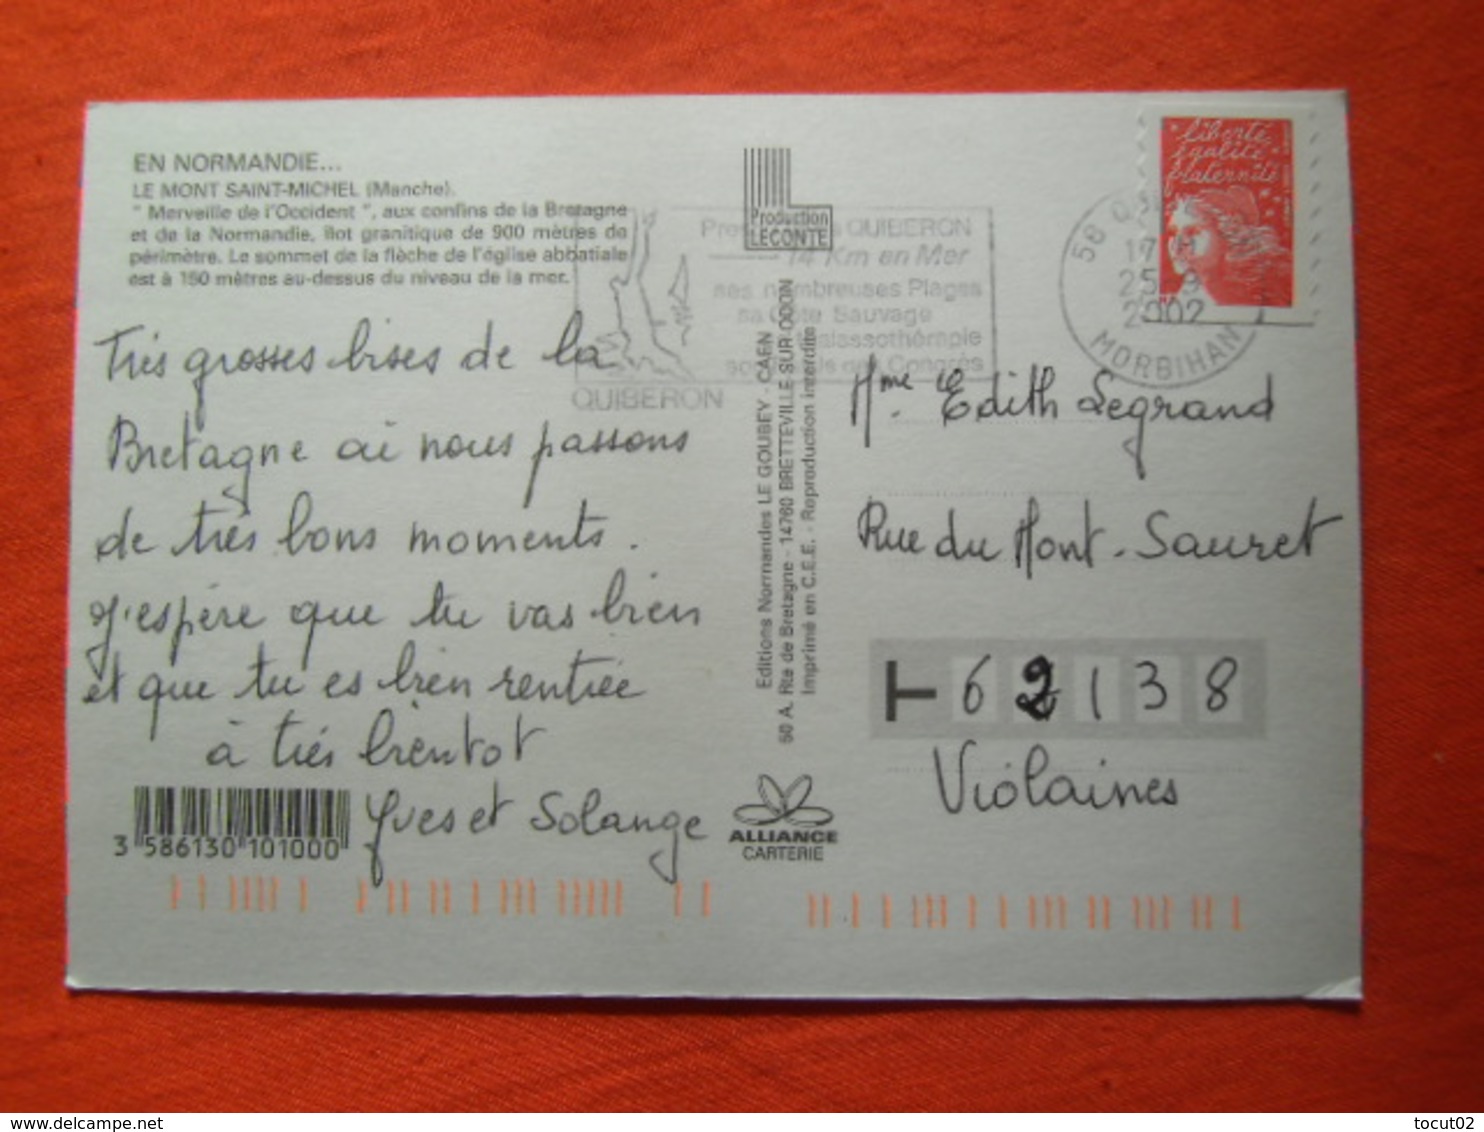 EN NORMANDIE...
LE MONT SAINT-MICHEL (Manche).
" Merveille de l'Occident ", aux confins de la Bretagne
et de la Normandie, îlot granitique de 900 mètres de
périmètre. Le sommet de la flèche de l'église abbatiale
est à 150 mètres au-dessus du niveau de la mer.
Très grosses bises de la
Bretagne ai nous passons
de très bons moments.
J'espère que tu vas bien
et que tu es bien rentrée
à très bientot
Yves et Solange
3 586130 101000
Production
LECONTE
QUIBERON
14 Km en Mer
ses nombreuses Plages
sa Côte Sauvage
Congrès
QUIBERON
Editions Normandes LE GOUBEY - CAEN
60 A, Rte de Bretagne - 14760 BRETTEVILLE-SUR-ODON
Imprimé en C.E.E. - Reproduction interdite
ALLIANCE
CARTERIE
liberté
égalité
fraternité
2002
MORBIHAN
Mme Edith Legrand
Rue du Mont-Sauret
62138
Violaines
tocut02